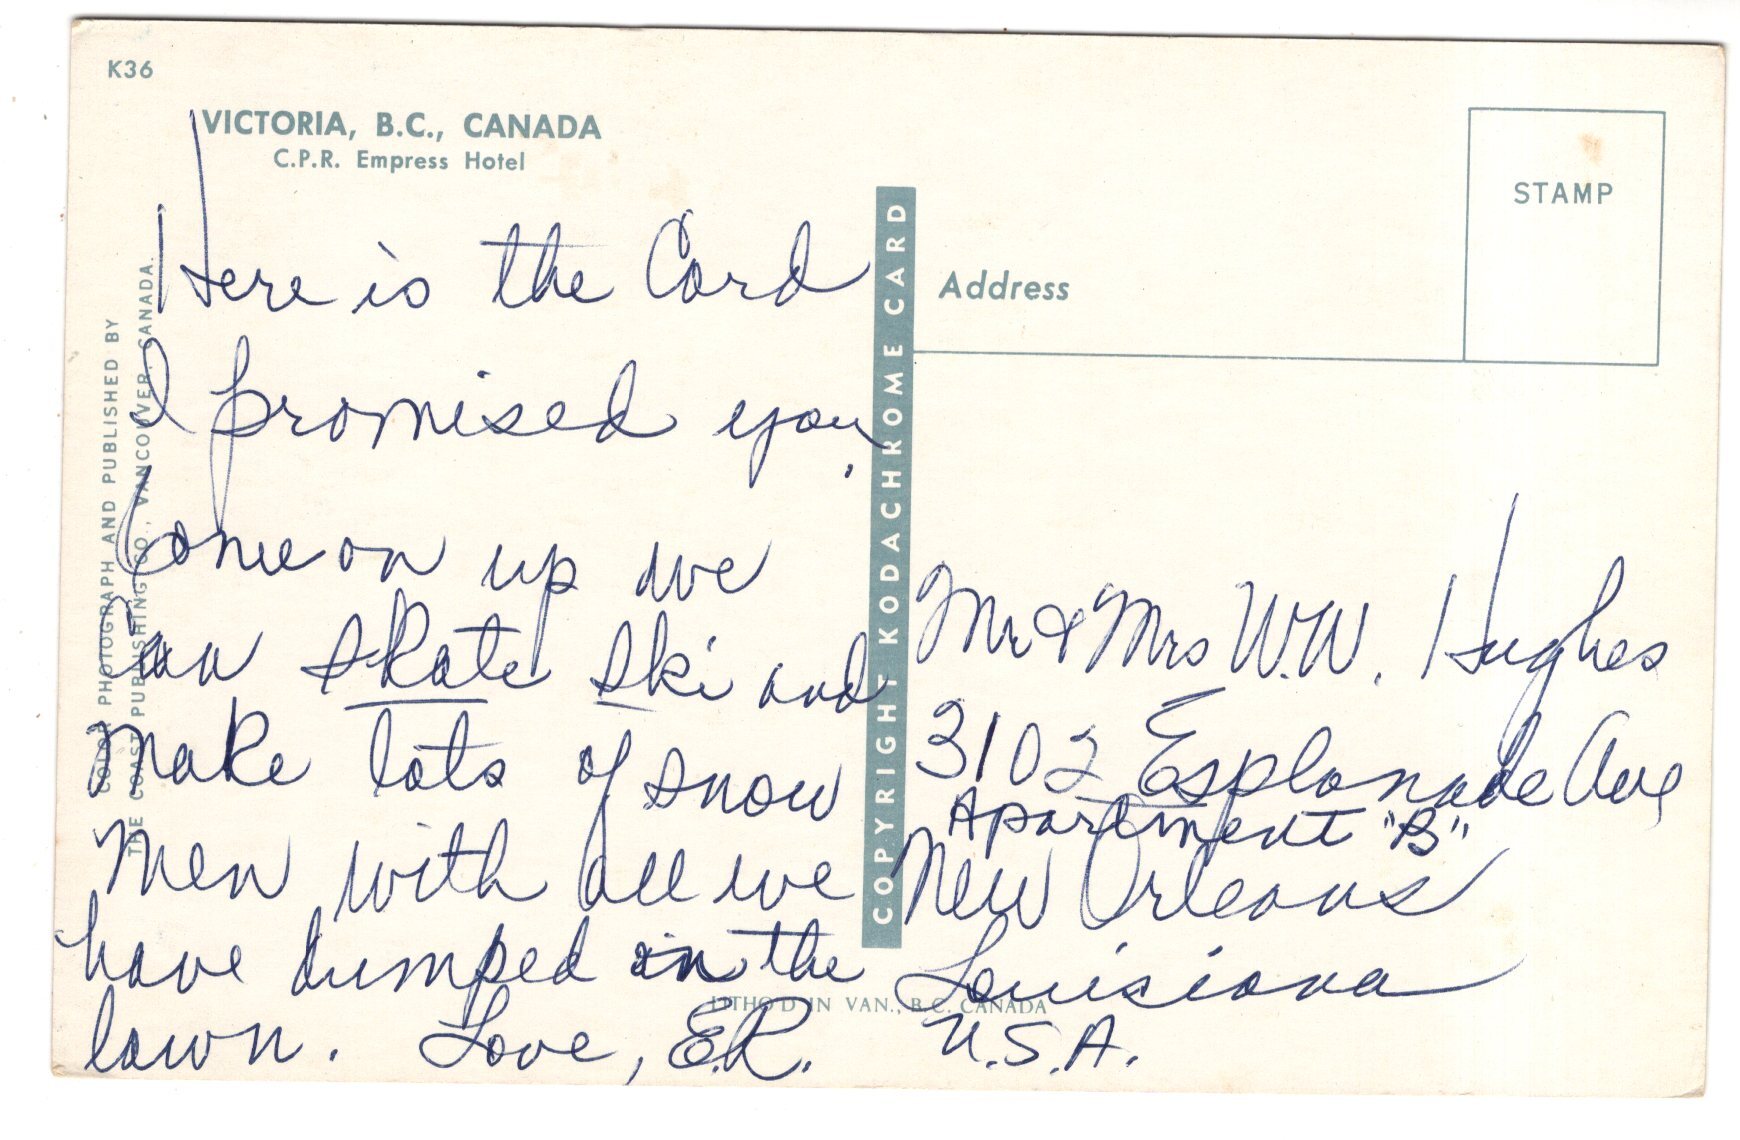 K36
VICTORIA, B.C., CANADA
C.P.R. Empress Hotel
Here is the Card
I promised you.
Come on up we
Can skate ski and
make lots of snow
men with all we
have dumped in the
lawn. Love, E.R.
COLOR PHOTOGRAPH AND PUBLISHED BY
THE COAST PUBLISHING CO., VANCOUVER, CANADA.
COPYRIGHT KODACHROME CARD
STAMP
Address
Mr & Mrs W.W. Hughes
3102 Esplanade Ave
Apartment "B"
New Orleans
Louisiana
U.S.A.
LITHO'D IN VAN., B.C. CANADA